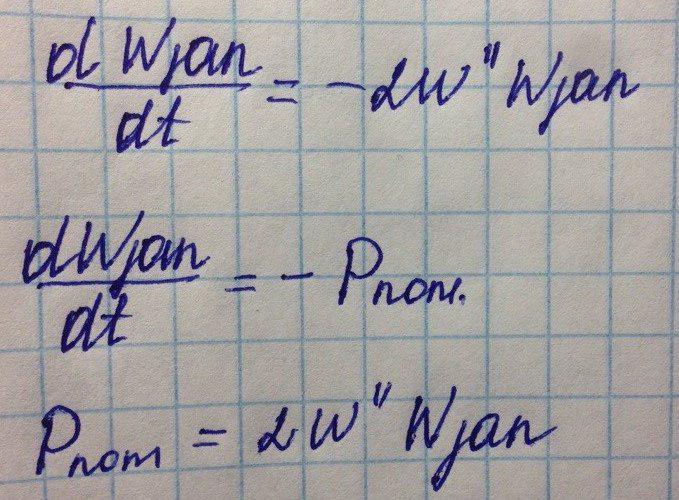 dWзап/dt = -2w"Wзап
dWзап/dt = - Pпот.
Pпот = 2w"Wзап